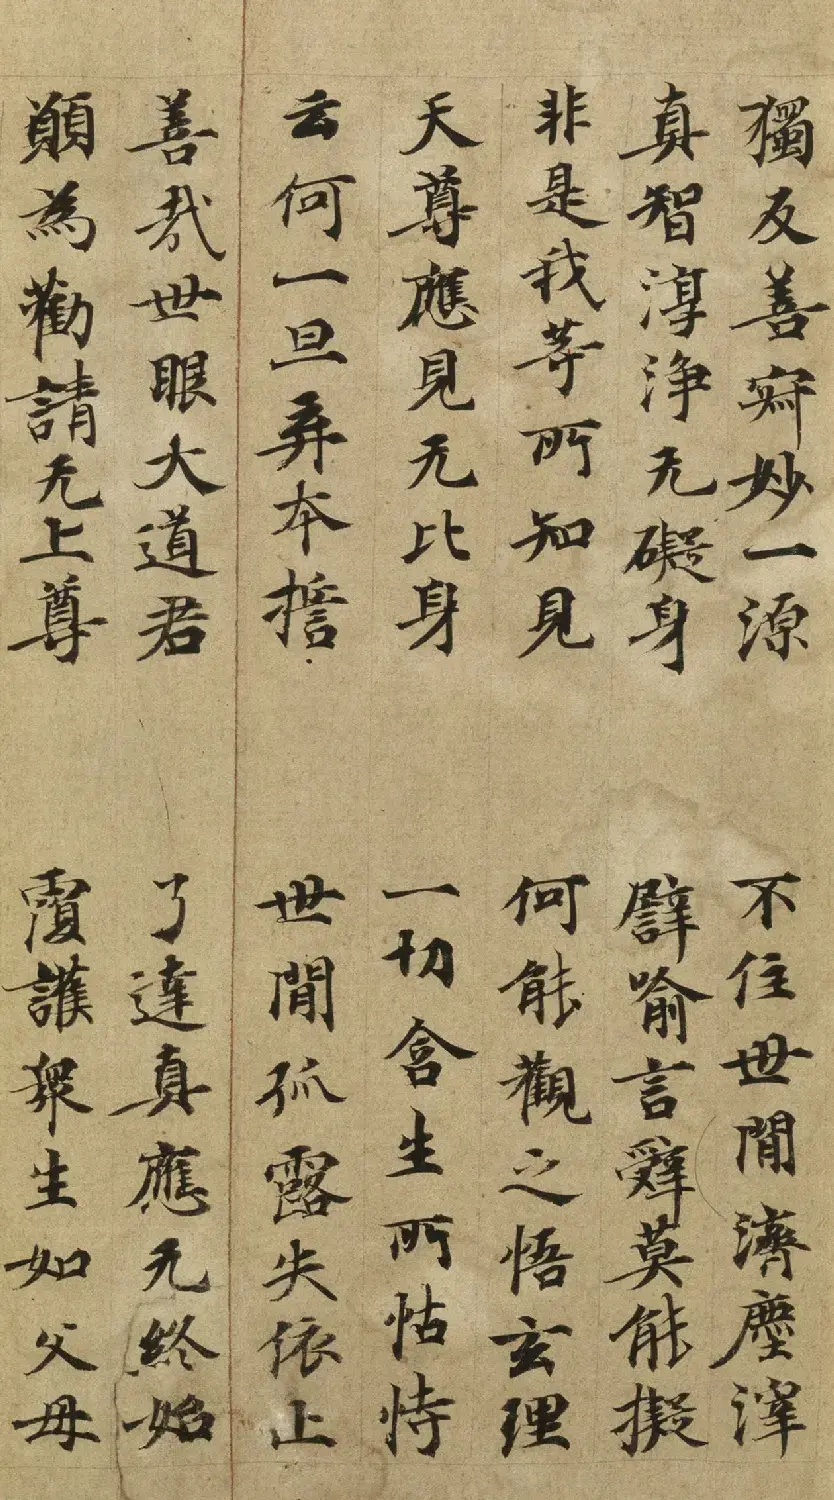 獨反善寂妙一源　不住世間濟塵滓
真智淳淨无礙身　譬喻言辭莫能擬
非是我等所知見　何能觀之悟玄理
天尊應見无比身　一切含生所怙恃
云何一旦弃本擔　世間孤露失依止
善哉世眼大道君　了達真應无終始
願為勸請无上尊　覆護眾生如父母